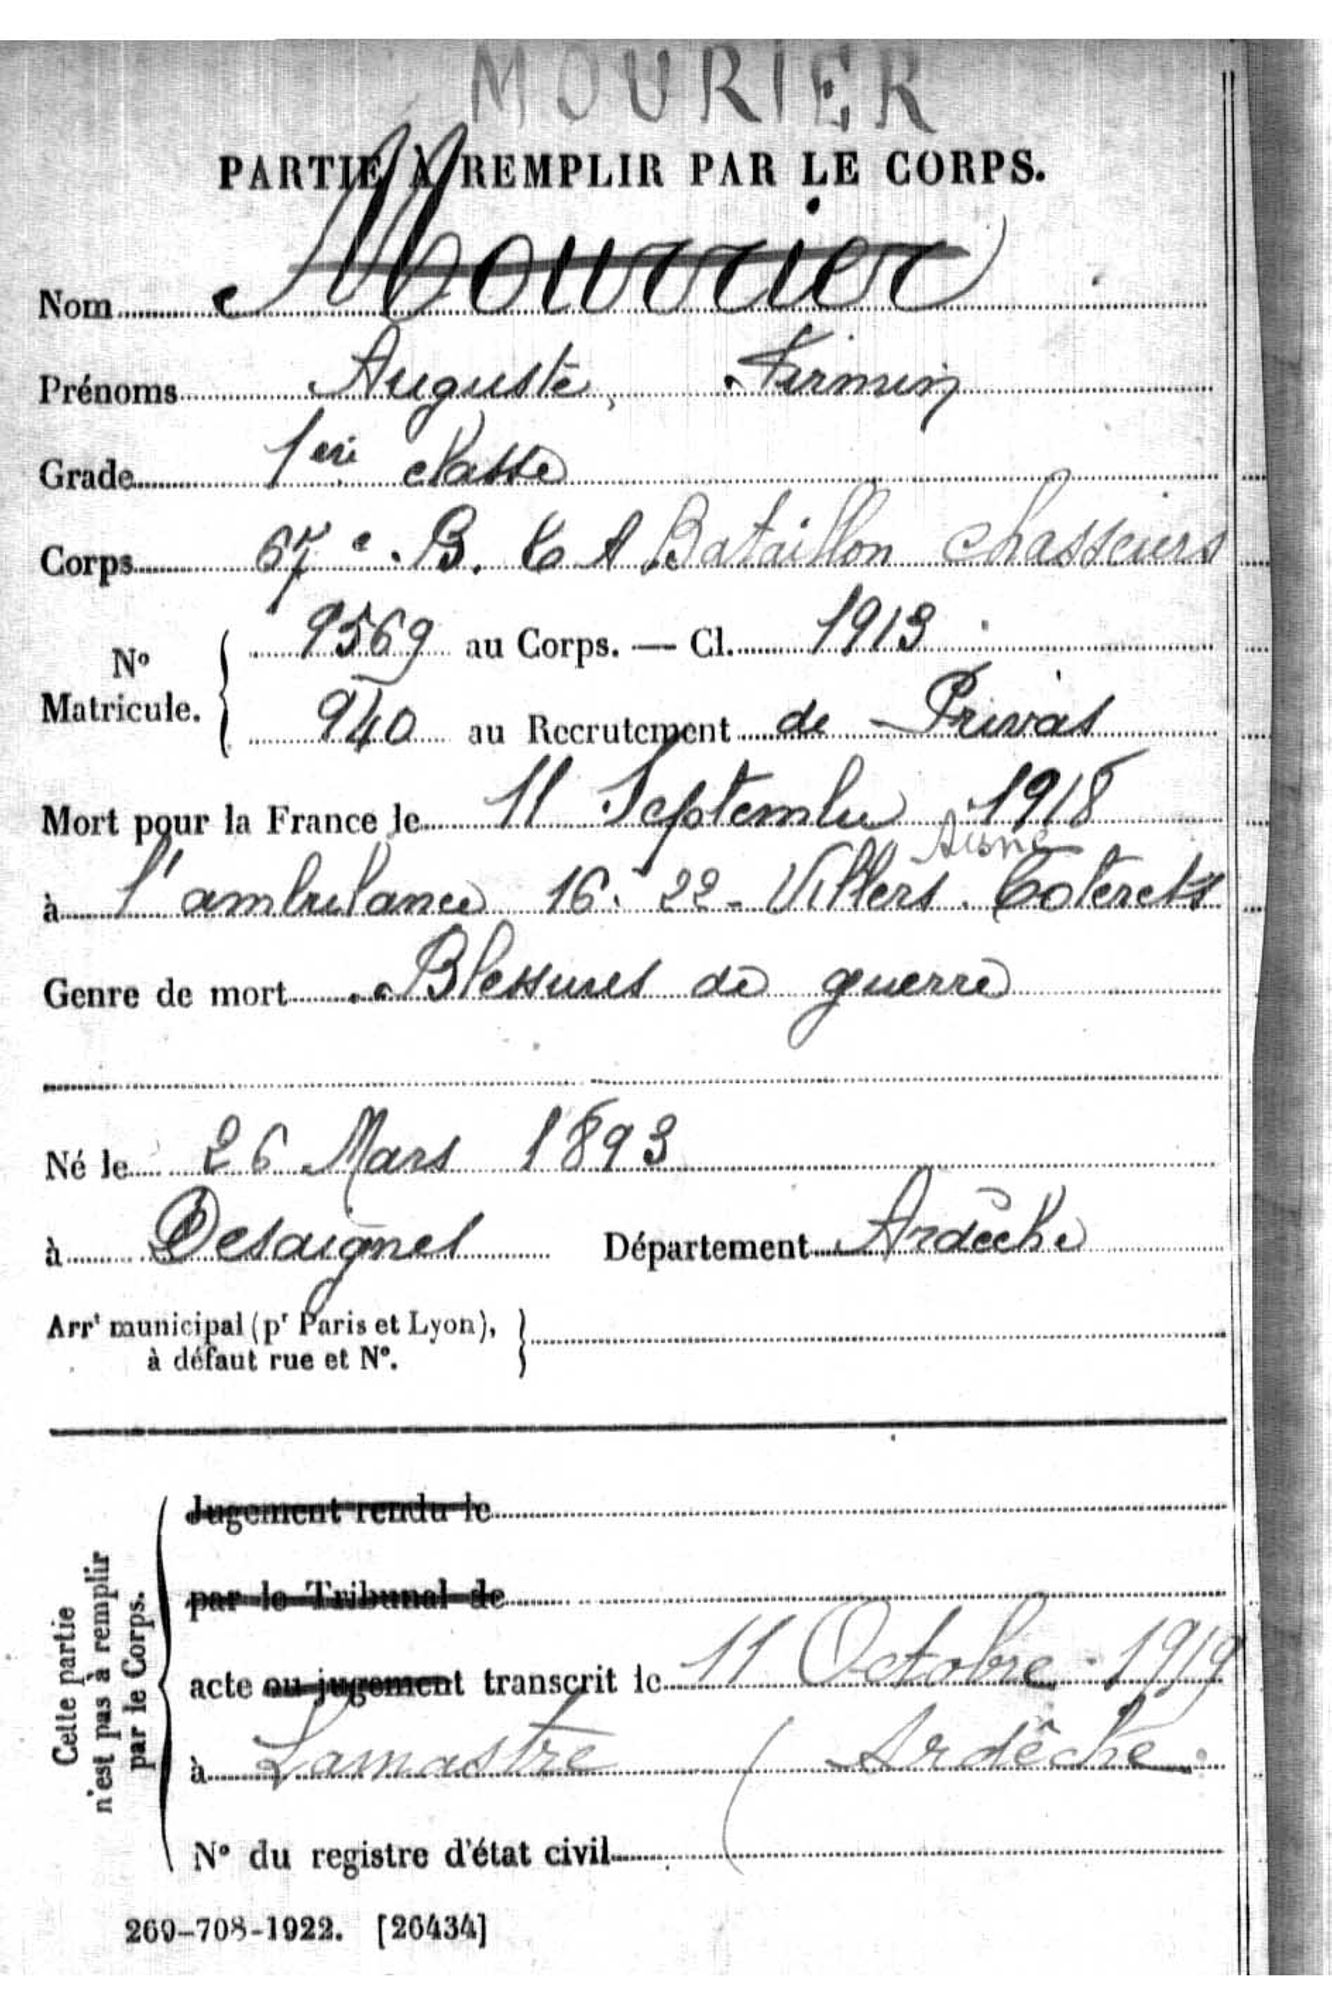 MOURIER
PARTIE À REMPLIR PAR LE CORPS.
Nom Mourrier
Prénoms Auguste, Firmin
Grade 1ere classe
Corps 67e B. C A Bataillon chasseurs
No Matricule. { 9569 au Corps. — Cl. 1913
940 au Recrutement de Privas
Mort pour la France le 11 Septembre 1918
Aisne
à l'ambulance 16. 22 - Villers. Coterets
Genre de mort Blessures de guerre
Né le 26 Mars 1893
à Desaignes Département Ardèche
Arrt municipal (pr Paris et Lyon), }
à défaut rue et No.
Cette partie
n'est pas à remplir
par le Corps.
Jugement rendu le
par le Tribunal de
acte ou jugement transcrit le 11 Octobre 1919
à Lamastre (Ardèche
No du registre d'état civil
269-708-1922. [26434]